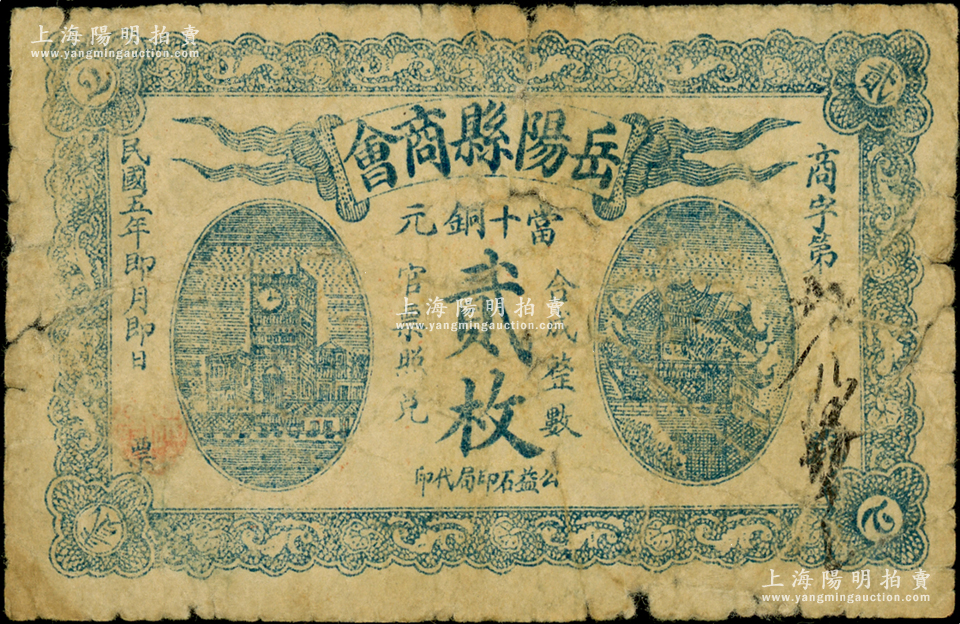 上海陽明拍賣
www.yangmingauction.com
岳陽縣商會
當十銅元
貳枚
合成整數
官票照兌
商字第
民國五年即月即日
票
公益石印局代印
上海陽明拍賣
www.yangmingauction.com
上海陽明拍賣
www.yangmingauction.com